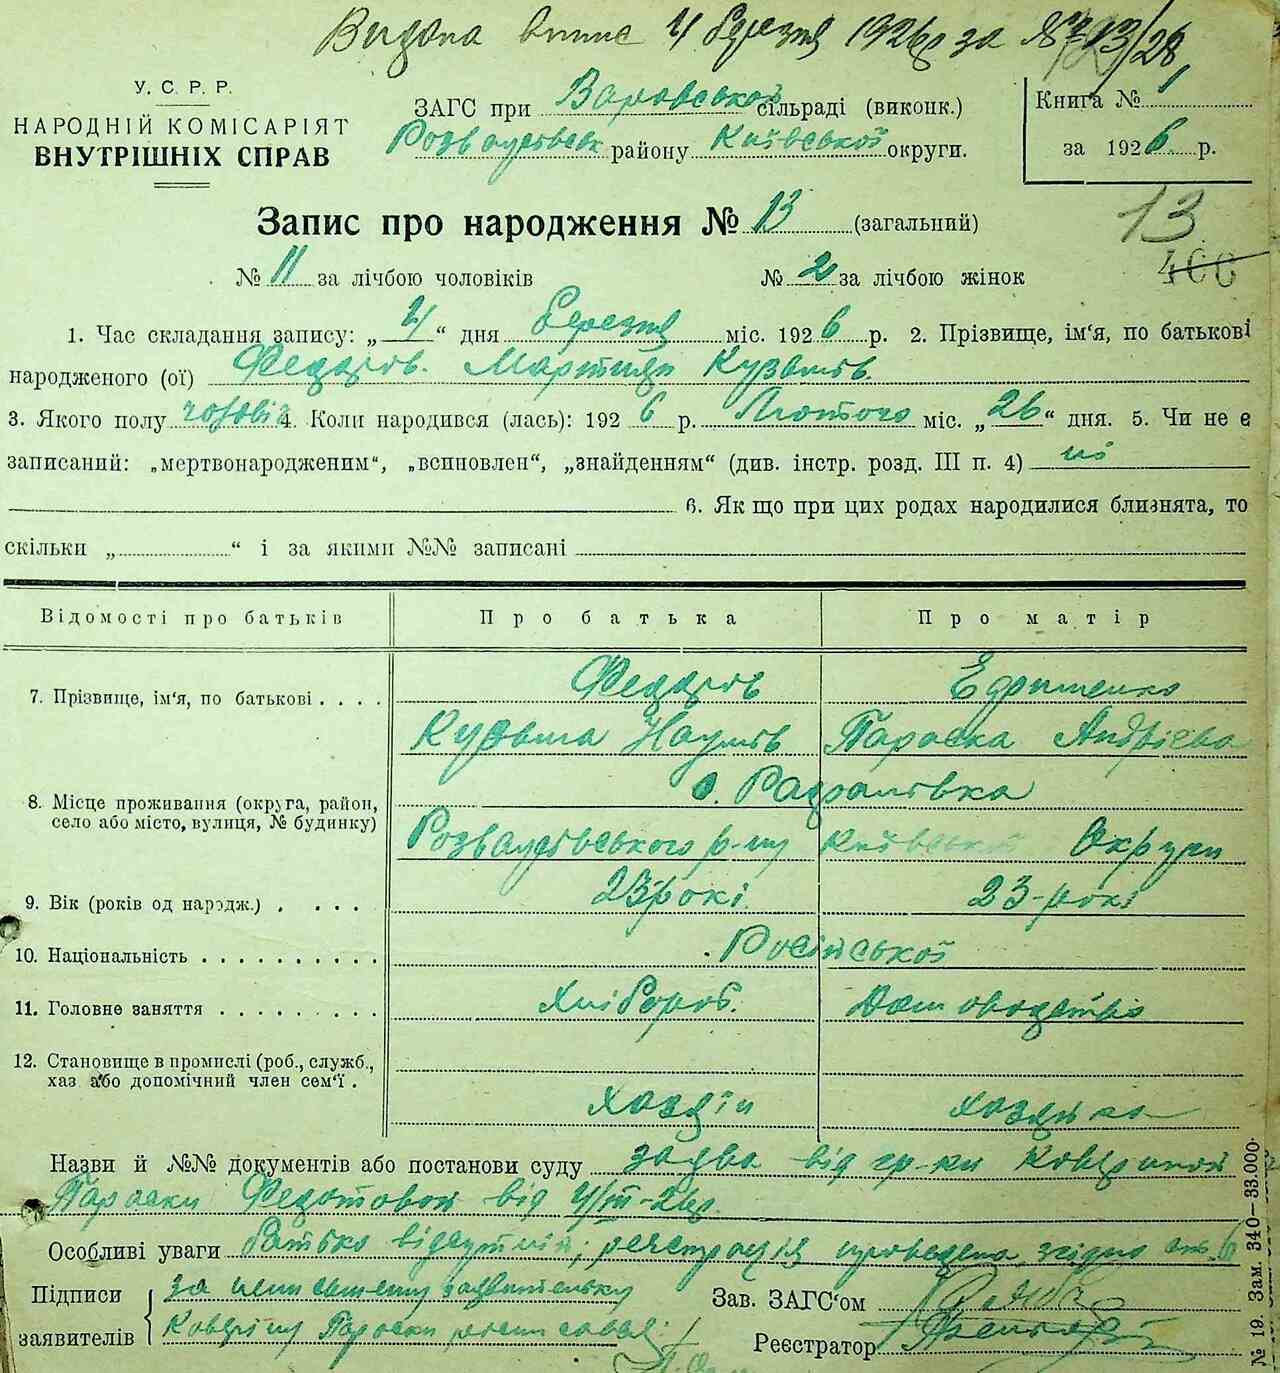 Видана випис 4 березня 1926 р за № 13/28
У. С. Р. Р.
НАРОДНІЙ КОМІСАРІЯТ
ВНУТРІШНІХ СПРАВ
ЗАГС при Варовської сільраді (виконк.)
Розважівськ району Київської округи.
Книга № 1
за 1926 р.
Запис про народження № 13 (загальний)
13
400
№ 11 за лічбою чоловіків № 2 за лічбою жінок
1. Час складання запису: „4“ дня березня міс. 1926 р. 2. Прізвище, ім‘я, по батькові
народженого (ої) Федорів. Мартиян Кузьмів.
3. Якого полу чоловіч 4. Коли народився (лась): 1926 р. Лютого міс. „26“ дня. 5. Чи не є
записаний: „мертвонародженим“, „всиновлен“, „знайденням“ (див. інстр. розд. III п. 4) ні
6. Як що при цих родах народилися близнята, то
скільки „ “ і за якими №№ записані
Відомості про батьків Про батька Про матір
7. Прізвище, ім‘я, по батькові . . . . Федорів
Кузьма Наумів Параска Андрієва
8. Місце проживання (округа, район,
село або місто, вулиця, № будинку)
с. Рафалівка
Розважівського р-ну Київської Округи
9. Вік (років од народж.) . . . . 23 рокі. 23-рокі
10. Національність . . . . . . . . . . Російської
11. Головне заняття . . . . . . . . . Хлібороб. Домоводство
12. Становище в промислі (роб., служб.,
хаз або допомічний член сем‘ї .
Хазяїн хазяйка
Назви й №№ документів або постанови суду заява від гр-ки
Параски Федотовой від 4/III-26 р.
Особливі уваги батько відсутній; реєстрація проведена згідно ст. 6
Підписи
заявителів
за неписьменну заявительку
Параску росписався:
Зав. ЗАГС‘ом
Реєстратор
№ 19. Зам. 340–33.000.